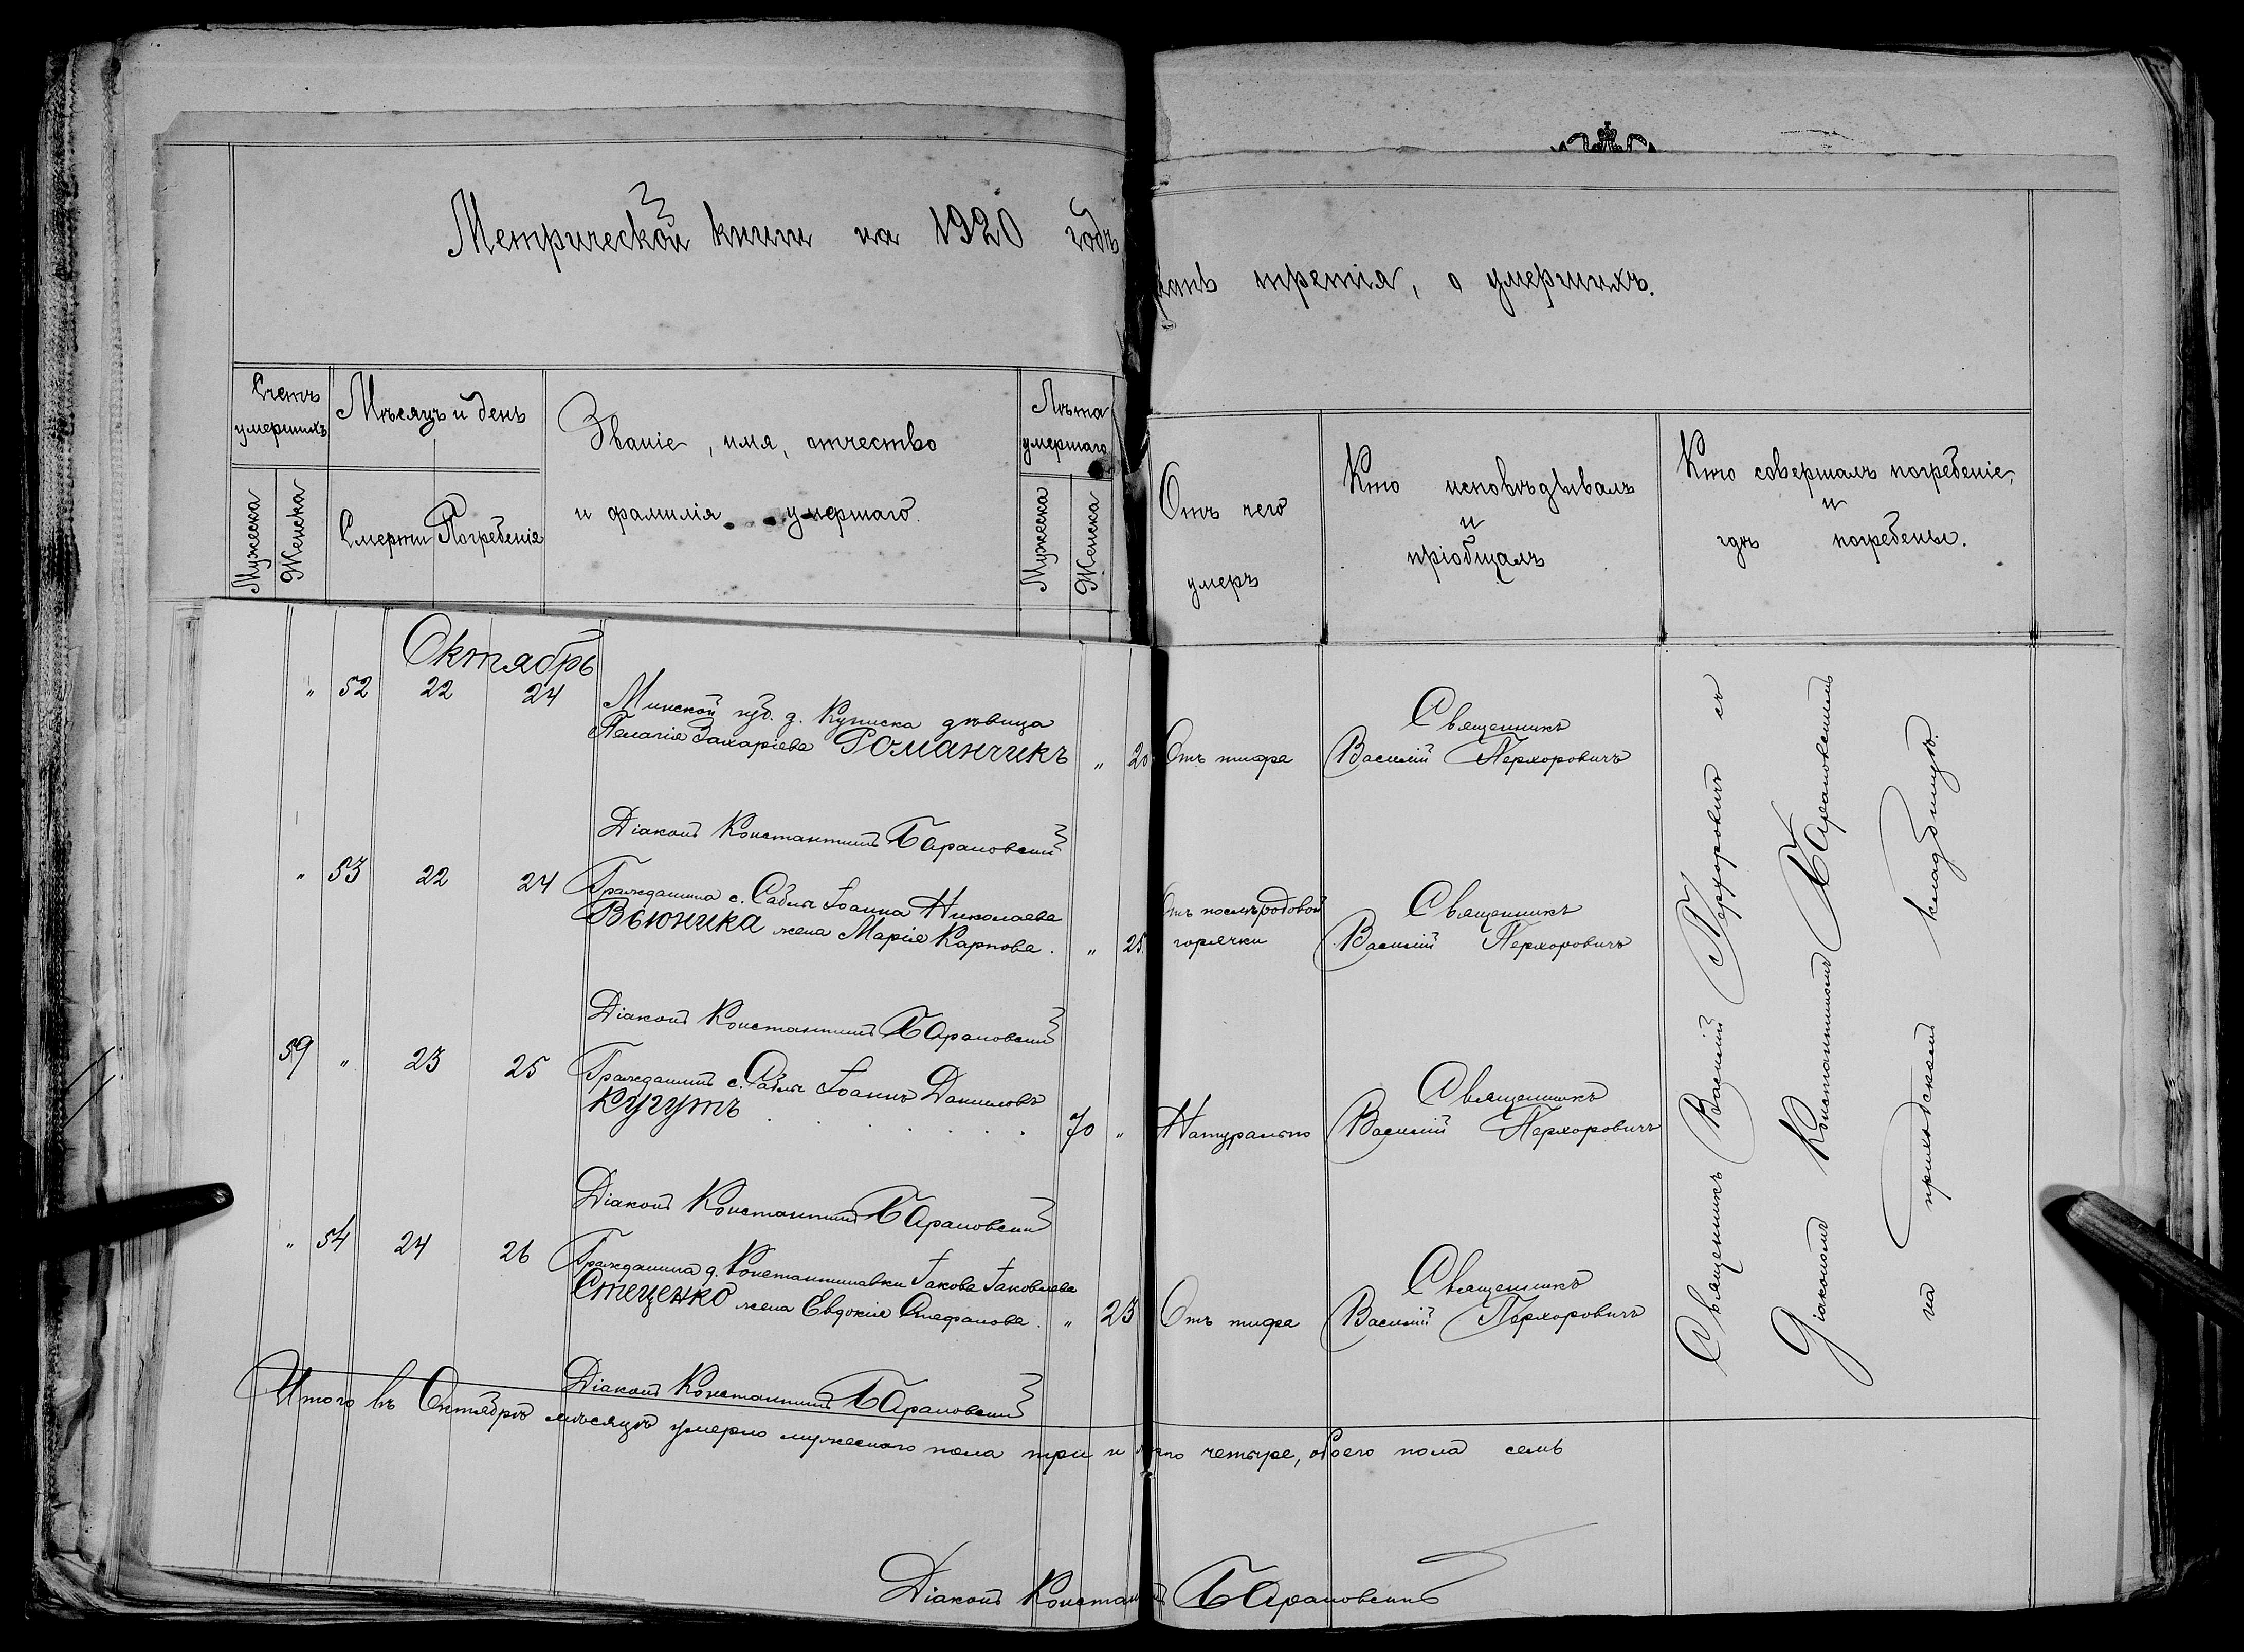 Метрической книги на 1920 годъ
третія, о умершихъ.
Счетъ умершихъ
Мужеска
Женска
Мѣсяцъ и день
Смерти
Погребенія
Званіе, имя, отчество
и фамилія умершаго.
Лѣта умершаго
Мужеска
Женска
Отъ чего
умеръ
Кто исповѣдывалъ
и
пріобщалъ
Кто совершалъ погребеніе,
и
гдѣ погребены.
Октябрь
" 52 22 24
Минской губ. д. дѣвица
Пелагія Захаріева Романчикъ
" 20
Отъ тифа
Священникъ
Василій Перхоровичъ
Діаконъ Константинъ Барановскій
" 53 22 24
Гражданина с. Саблы Іоанна Николаева
Вьюника жена Марія Карпова.
" 25.
Отъ послѣродовой
горячки
Священникъ
Василій Перхоровичъ
Діаконъ Константинъ Барановскій
59 " 23 25
Гражданинъ с. Саблы Іоаннъ Даниловъ
Кугутъ . . . . . . .
70 "
Натурально
Священникъ
Василій Перхоровичъ
Діаконъ Константинъ Барановскій
" 54 24 26
Гражданина д. Константиновки Іакова Іаковлева
Стеценко жена Евдокія Стефанова.
" 23
Отъ тифа
Священникъ
Василій Перхоровичъ
Діаконъ Константинъ Барановскій
Священникъ Василій Перхоровичъ съ
Діакономъ Константиномъ Барановскимъ
на приходскомъ кладбищѣ.
Итого въ Октябрѣ мѣсяцѣ умерло мужескаго пола три и четыре, обоего пола семь
Діаконъ Константинъ Барановскій